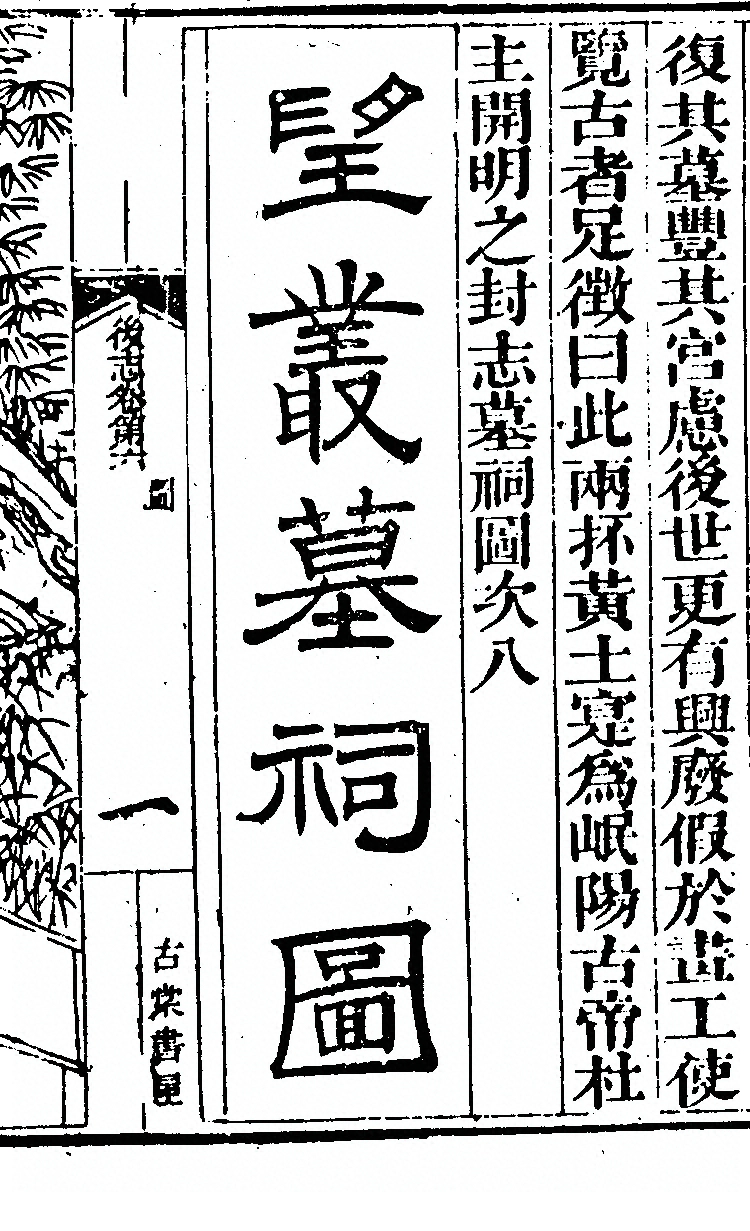 復其墓豐其宮慮後世更有興廢假於畫工使
覽古者足徵曰此兩抔黃土寔為岷陽古帝杜
主開明之封志墓祠圖次八
望叢墓祠圖
後志卷第六
圖
一
古棠書屋